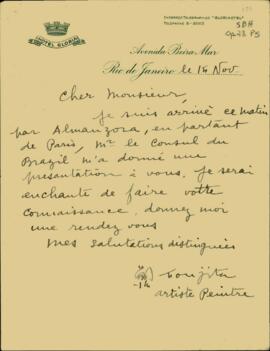 HOTEL GLORIA
ENDEREÇO TELEGRAPHICO "GLORIAHOTEL"
TELEPHONE B-M
Avenida Beira Mar
Rio de Janeiro le 14 Nov.
Cher Monsieur,
je suis arrivé ce matin
par Almanzora, en partant
de Paris, Mr le Consul du
Brazil m'a donné une
presantation à vous. je serai
enchante de faire votte
connaissance, donnez moi
une rendez vous
Mes salutations distinguées
Foujita
artiste Peintre